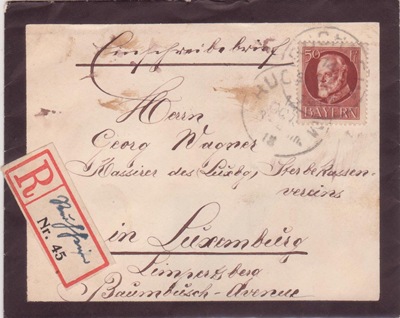 Einschreibebrief
50
BAYERN
Herrn
Georg Wagner
Kassirer des Luxbg. Sterbekassen-
vereins
in Luxemburg
Limpertsberg
Baumbusch-Avenue
R
Nr. 45